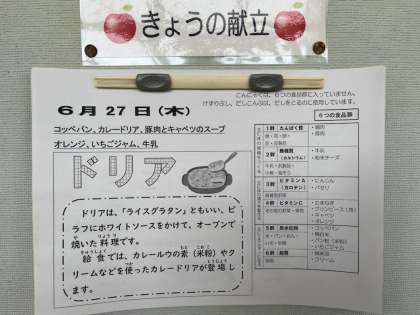 きょうの献立
こんにゃくは、6つの食品群に入っていません。
けずりぶし、だしこんぶは、だしをとるのに使用しています。
6月 27日(木)
コッペパン、カレードリア、豚肉とキャベツのスープ
オレンジ、いちごジャム、牛乳
ドリア
ドリアは、「ライスグラタン」ともいい、ピ
ラフにホワイトソースをかけて、オーブンで
焼いた料理です。
給食では、カレールウの素(米粉)やク
リームなどを使ったカレードリアが登場し
ます。
6つの食品群
1群 たんぱく質
・鶏肉
・豚肉
2群 無機質
(カルシウム)
・牛乳
・粉末チーズ
3群 ビタミンA
(カロテン)
・にんじん
・パセリ
4群 ビタミンC
・たまねぎ
・キャベツ
・オレンジ
5群 炭水化物
・コッペパン
・精白米
6群 脂質
・クリーム